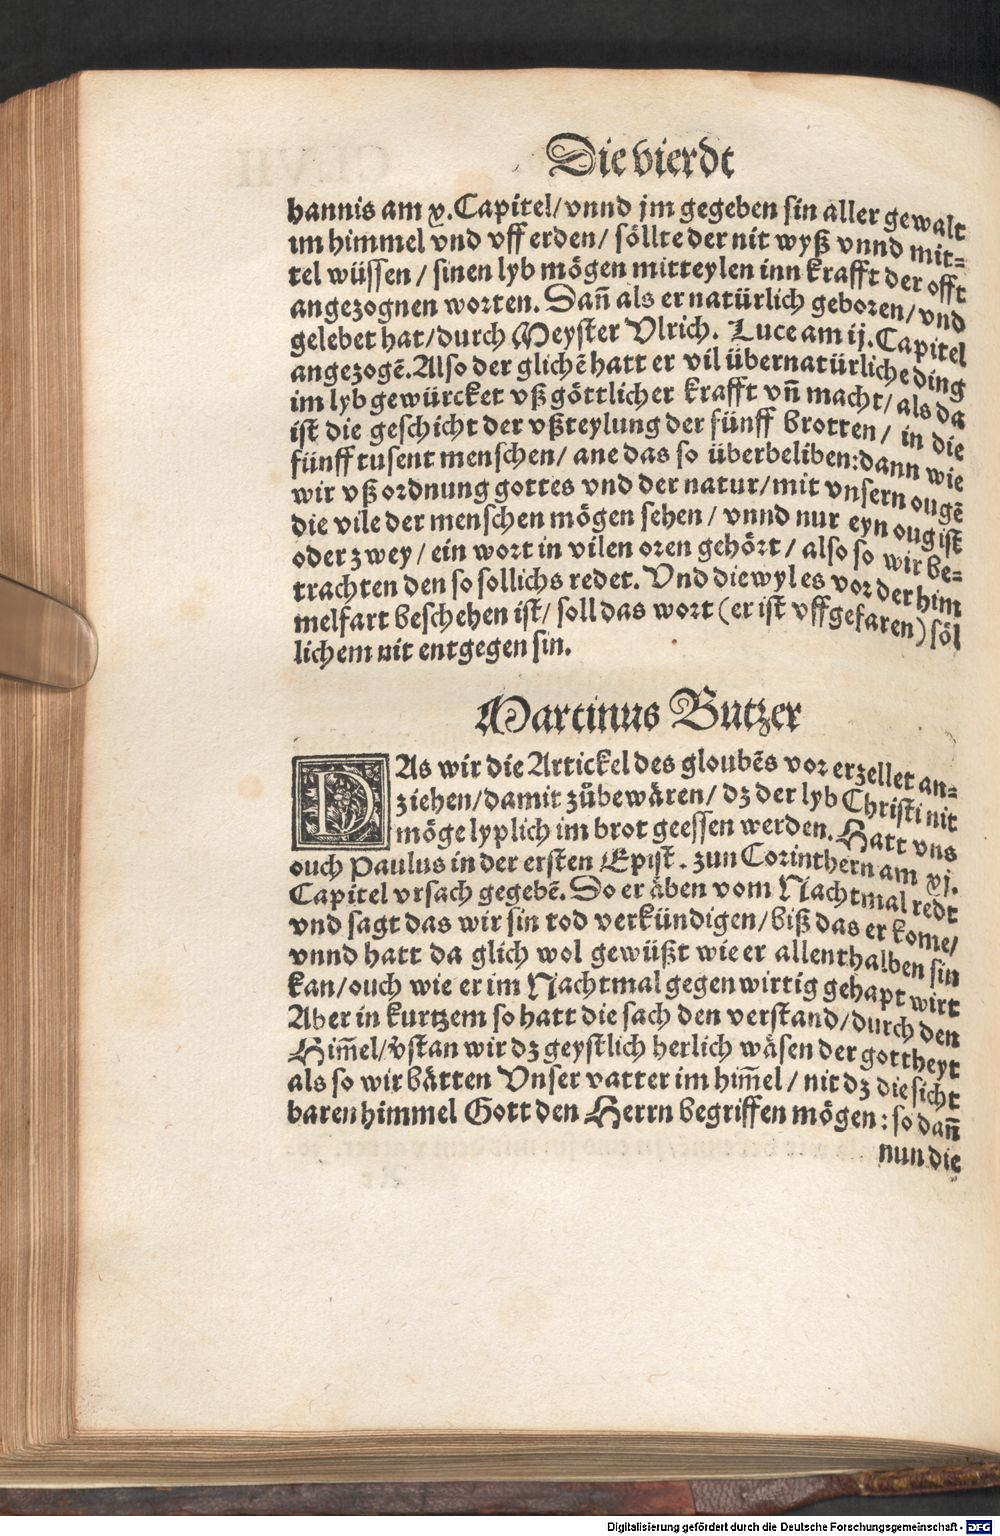 Die vierdt
hannis am x. Capitel/ vnnd jm gegeben sin aller gewalt
im himmel vnd vff erden/ söllte der nit wyß vnnd mit-
tel wüssen/ sinen lyb mögen mitteylen inn krafft der offt
angezognen worten. Dañ als er natürlich geboren/ vnd
gelebet hat/ durch Meyster Vlrich. Luce am ij. Capitel
angezogẽ. Also der glichẽ hatt er vil übernatürliche ding
im lyb gewürcket vß göttlicher krafft vñ macht/ als da
ist die geschicht der vßteylung der fünff brotten/ in die
fünff tusent menschen/ ane das so überbeliben: dann wie
wir vß ordnung gottes vnd der natur/ mit vnsern ougẽ
die vile der menschen mögen sehen/ vnnd nur eyn oug ist
oder zwey/ ein wort in vilen oren gehört/ also so wir be-
trachten den so sollichs redet. Vnd diewyl es vor der him
melfart beschehen ist/ soll das wort (er ist vffgefaren) söl
lichem nit entgegen sin.
Martinus Butzer
DAs wir die Artickel des gloubẽs vor erzellet an-
ziehen/ damit zů bewären/ dz der lyb Christi nit
möge lyplich im brot geessen werden. Hatt vns
ouch Paulus in der ersten Epist. zun Corinthern am xj.
Capitel vrsach gegebẽ. So er äben vom Nachtmal redt
vnd sagt das wir sin tod verkündigen/ biß das er kome/
vnnd hatt da glich wol gewüßt wie er allenthalben sin
kan/ ouch wie er im Nachtmal gegenwirtig gehapt wirt
Aber in kurtzem so hatt die sach den verstand/ durch den
Him̃el/ v̊stan wir dz geystlich herlich wäsen der gottheyt
als so wir bätten Vnser vatter im him̃el/ nit dz die sicht
baren himmel Gott den Herrn begriffen mögen: so dañ
nun die
Digitalisierung gefördert durch die Deutsche Forschungsgemeinschaft - DFG